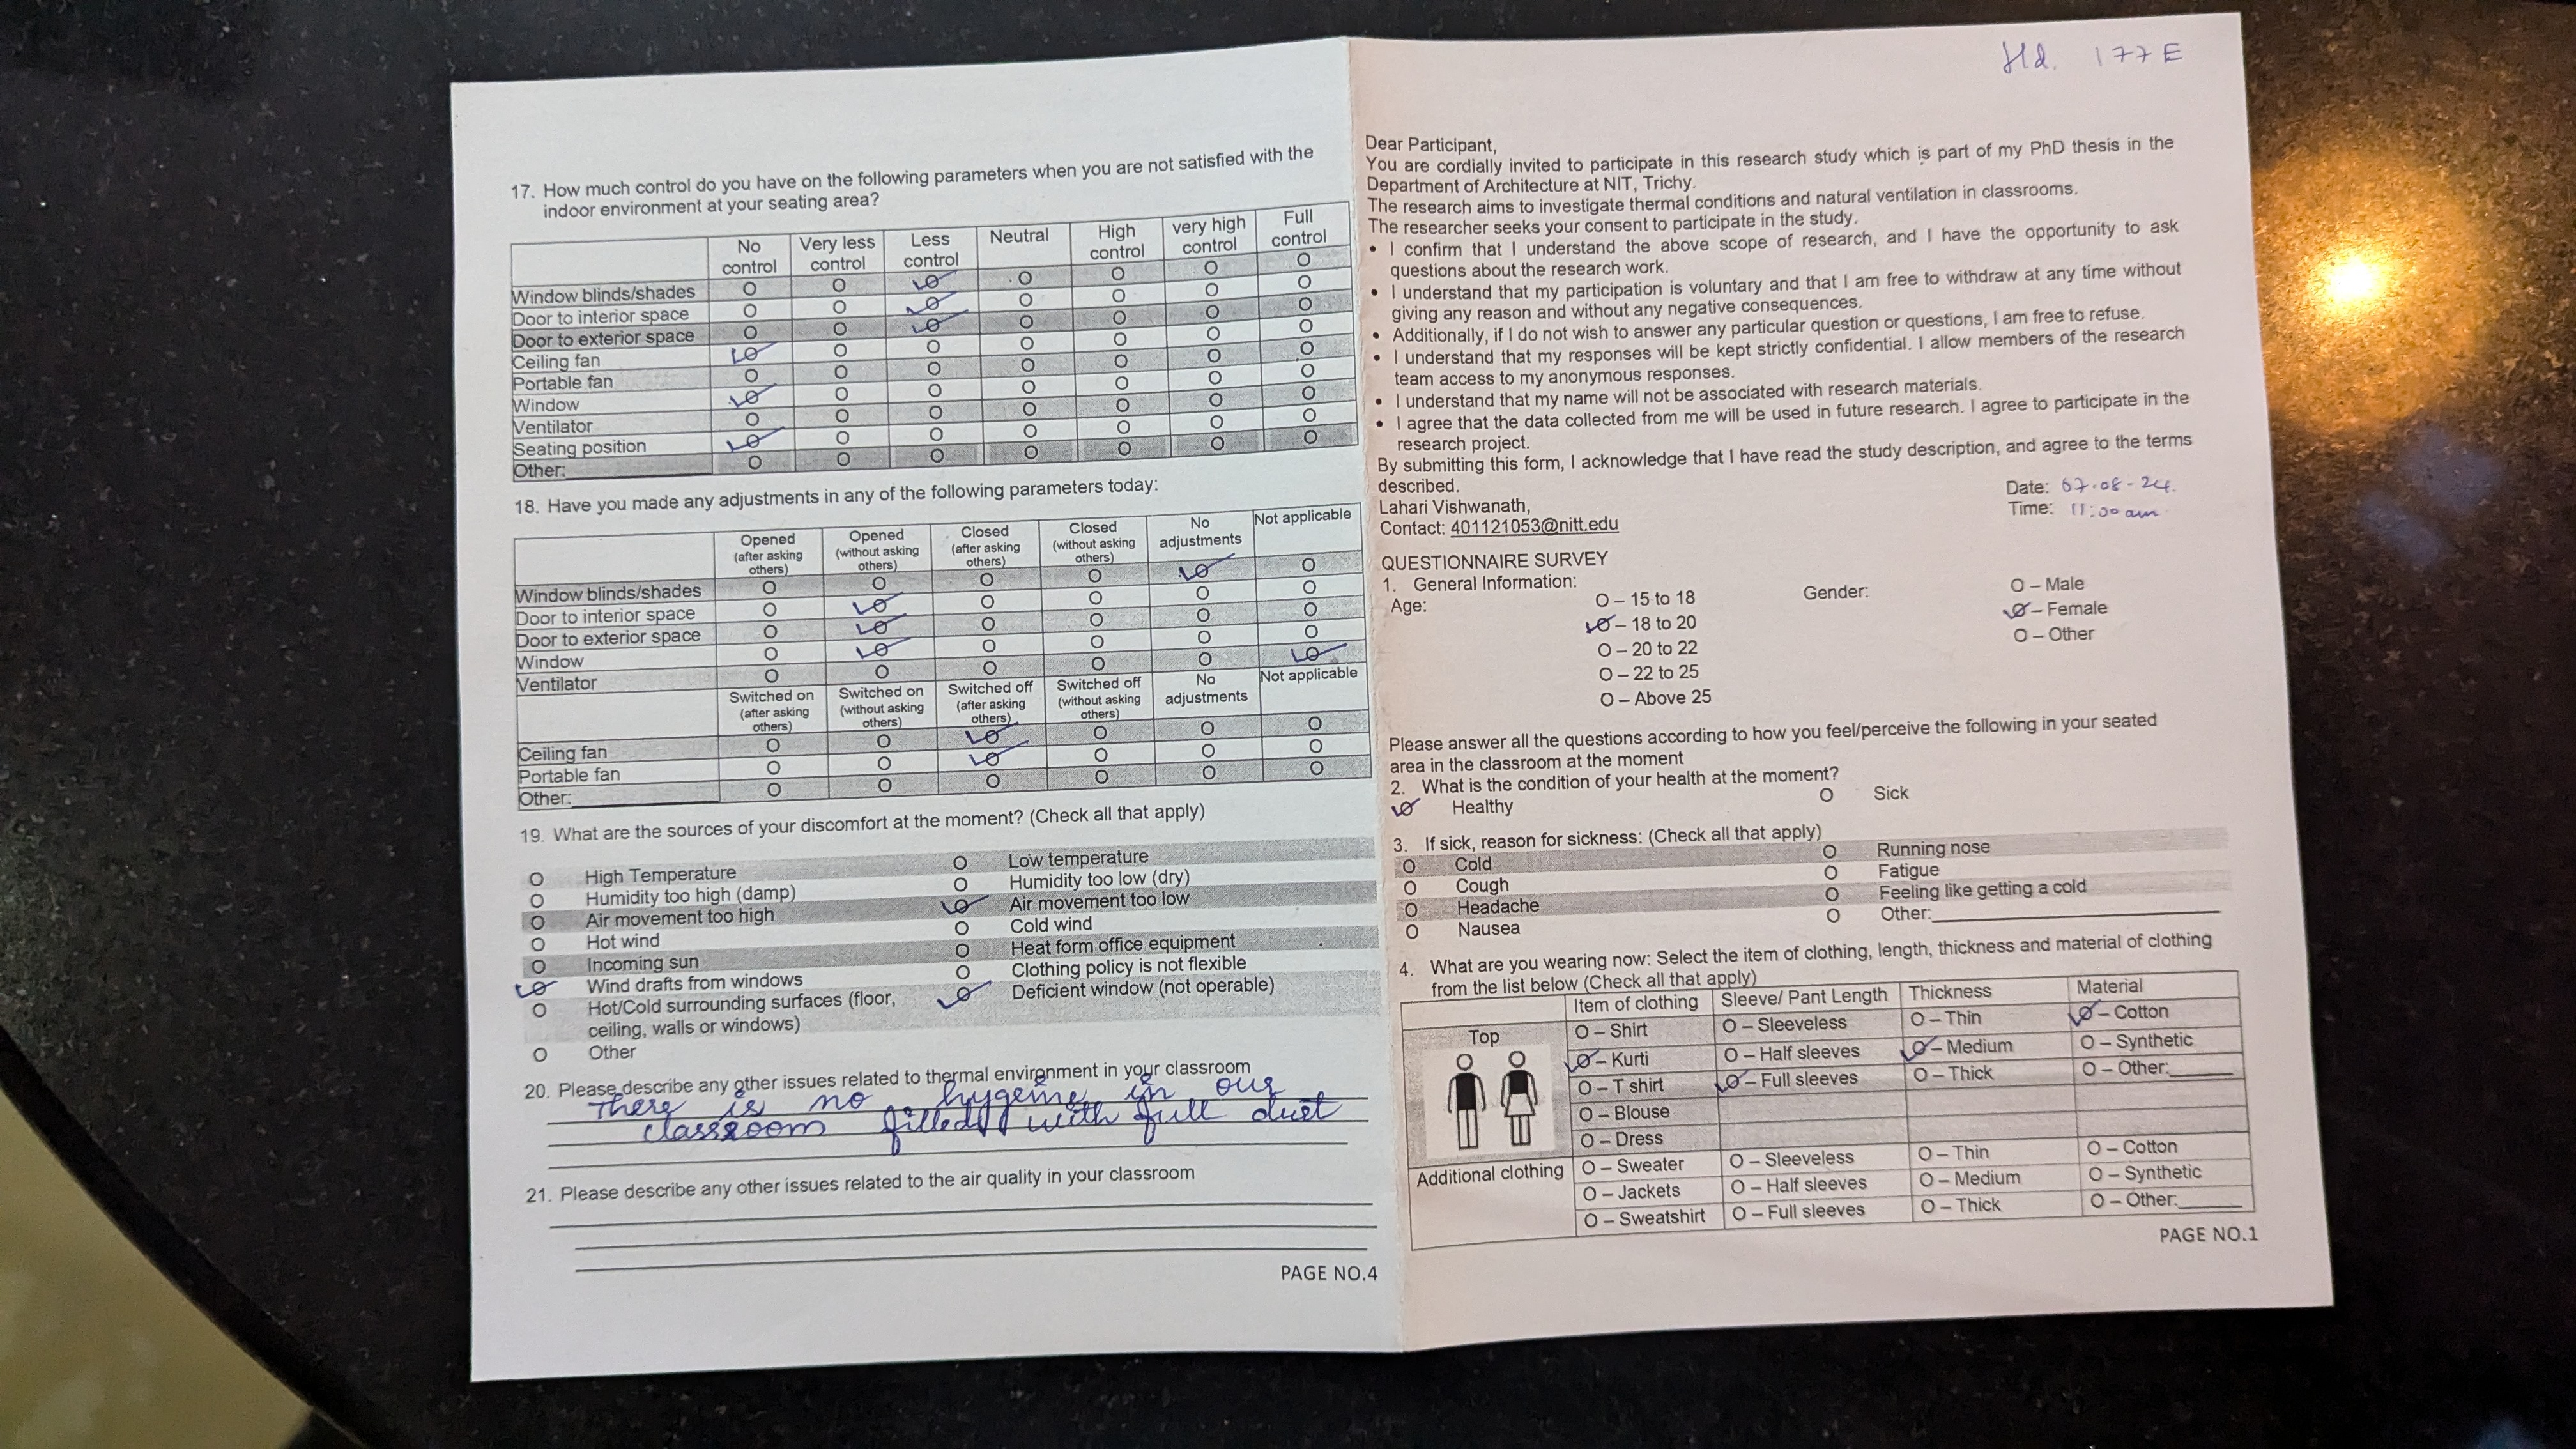 17. How much control do you have on the following parameters when you are not satisfied with the
indoor environment at your seating area?
No control Very less control Less control Neutral High control very high control Full control
Window blinds/shades O O O O O O O
Door to interior space O O O O O O O
Door to exterior space O O O O O O O
Ceiling fan O O O O O O O
Portable fan O O O O O O O
Window O O O O O O O
Ventilator O O O O O O O
Seating position O O O O O O O
Other: O O O O O O O
18. Have you made any adjustments in any of the following parameters today:
Opened (after asking others) Opened (without asking others) Closed (after asking others) Closed (without asking others) No adjustments Not applicable
Window blinds/shades O O O O O O
Door to interior space O O O O O O
Door to exterior space O O O O O O
Window O O O O O O
Ventilator O O O O O O
Switched on (after asking others) Switched on (without asking others) Switched off (after asking others) Switched off (without asking others) No adjustments Not applicable
Ceiling fan O O O O O O
Portable fan O O O O O O
Other: O O O O O O
19. What are the sources of your discomfort at the moment? (Check all that apply)
O High Temperature O Low temperature
O Humidity too high (damp) O Humidity too low (dry)
O Air movement too high O Air movement too low
O Hot wind O Cold wind
O Incoming sun O Heat form office equipment
O Wind drafts from windows O Clothing policy is not flexible
O Hot/Cold surrounding surfaces (floor, O Deficient window (not operable)
ceiling, walls or windows)
O Other
20. Please describe any other issues related to thermal environment in your classroom
There is no hygeine in our
classroom filled with full dust
21. Please describe any other issues related to the air quality in your classroom
PAGE NO.4
177E
Dear Participant,
You are cordially invited to participate in this research study which is part of my PhD thesis in the
Department of Architecture at NIT, Trichy.
The research aims to investigate thermal conditions and natural ventilation in classrooms.
The researcher seeks your consent to participate in the study.
• I confirm that I understand the above scope of research, and I have the opportunity to ask
questions about the research work.
• I understand that my participation is voluntary and that I am free to withdraw at any time without
giving any reason and without any negative consequences.
• Additionally, if I do not wish to answer any particular question or questions, I am free to refuse.
• I understand that my responses will be kept strictly confidential. I allow members of the research
team access to my anonymous responses.
• I understand that my name will not be associated with research materials.
• I agree that the data collected from me will be used in future research. I agree to participate in the
research project.
By submitting this form, I acknowledge that I have read the study description, and agree to the terms
described.
Lahari Vishwanath,
Contact: 401121053@nitt.edu
Date: 07.08-24.
Time: 11:00 am
QUESTIONNAIRE SURVEY
1. General Information:
Age: O – 15 to 18 Gender: O – Male
O – 18 to 20 O – Female
O – 20 to 22 O – Other
O – 22 to 25
O – Above 25
Please answer all the questions according to how you feel/perceive the following in your seated
area in the classroom at the moment
2. What is the condition of your health at the moment?
O Healthy O Sick
3. If sick, reason for sickness: (Check all that apply)
O Cold O Running nose
O Cough O Fatigue
O Headache O Feeling like getting a cold
O Nausea O Other:
4. What are you wearing now: Select the item of clothing, length, thickness and material of clothing
from the list below (Check all that apply)
Item of clothing Sleeve/ Pant Length Thickness Material
Top O – Shirt O – Sleeveless O – Thin O – Cotton
O – Kurti O – Half sleeves O – Medium O – Synthetic
O – T shirt O – Full sleeves O – Thick O – Other:
O – Blouse
O – Dress
Additional clothing O – Sweater O – Sleeveless O – Thin O – Cotton
O – Jackets O – Half sleeves O – Medium O – Synthetic
O – Sweatshirt O – Full sleeves O – Thick O – Other:
PAGE NO.1